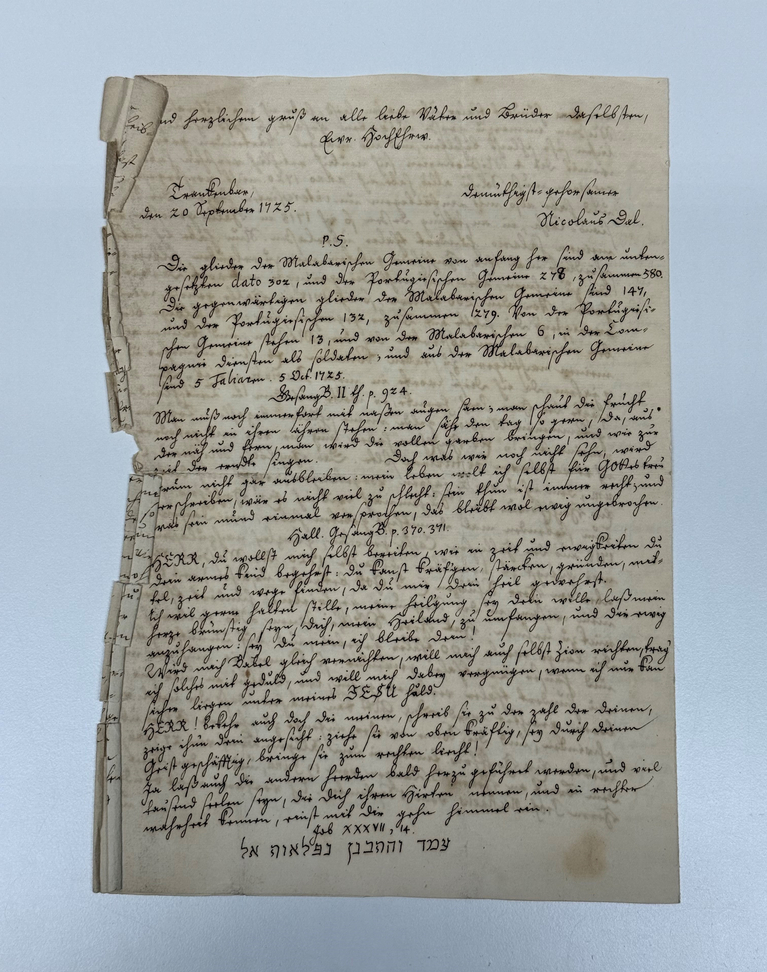 nd herzlichem gruß an alle liebe Väter und Brüder daselbsten,
Ewr. HochEhrw.
Trankenbar,
den 20 September 1725.
demüthigst-gehorsamer
Nicolaus Dal.
P.S.
Die glieder der Malabarischen Gemeine von anfang her sind am unten-
gesetzten dato 302, und der Portugiesischen Gemeine 278, zusammen 580.
Die gegenwärtigen glieder der Malabarischen Gemeine sind 147,
und der Portugiesischen 132, zusammen 279. Von der Portugiesi-
schen Gemeine stehen 13, und von der Malabarischen 6, in der Com-
pagnie diensten als soldaten, und aus der Malabarischen Gemeine
sind 5 Taliaren. 5 Oct. 1725.
GesangB. II th. p. 924.
Man muß noch immerfort mit naßen augen säen; man schaut die frücht
noch nicht in ihren ähren stehen; man sähe den tag so gern, da, aus
der näh und fern, man wird die vollen garben bringen, und wie zur
zeit der erndte singen. Doch was wir noch nicht sehn, wird
drüm nicht gar ausbleiben: mein leben wolt ich selbst für GOttes treu
verschreiben, wär es nicht viel zu schlecht: sein thun ist immer recht; und
was sein mund einmal versprochen, das bleibt wol ewig ungebrochen.
Hall. GesangB. p. 370. 371.
HERR, du wollst mich selbst bereiten, wie in zeit und ewigkeiten du
dein armes kind begehrst: du kanst kräftigen, stärcken, gründen, mit-
tel, zeit und wege finden, da du mir dein heil gewehrst.
Ich wil gerne halten stille, meine heilgung sey dein wille, laß mein
herze brünstig seyn, dich, mein Heiland, zu umfangen, und dir ewig
anzuhangen: sey du mein, ich bleibe dein!
Wird mich Babel gleich vernichten, will mich auch selbst Zion richten, trag
ich solches mit geduld, und will mich dabey vergnügen, wenn ich nur kan
sicher liegen unter meines JESU huld.
HERR! kehr auch doch die meinen, schreib sie zu der zahl der deinen,
zeige ihnn dein angesicht: ziehe sie von oben kräftig, sey durch deinen
Geist geschäfftig, bringe sie zum rechten liecht!
Ja laß auch die andern heerden bald herzu geführet werden, und viel
tausend seelen seyn, die dich ihren Hirten nennen, und in rechter
wahrheit kennen, einst mit dir gehn himmel ein.
Job XXXVII, 14.
עמד והתבונן נפלאות אל